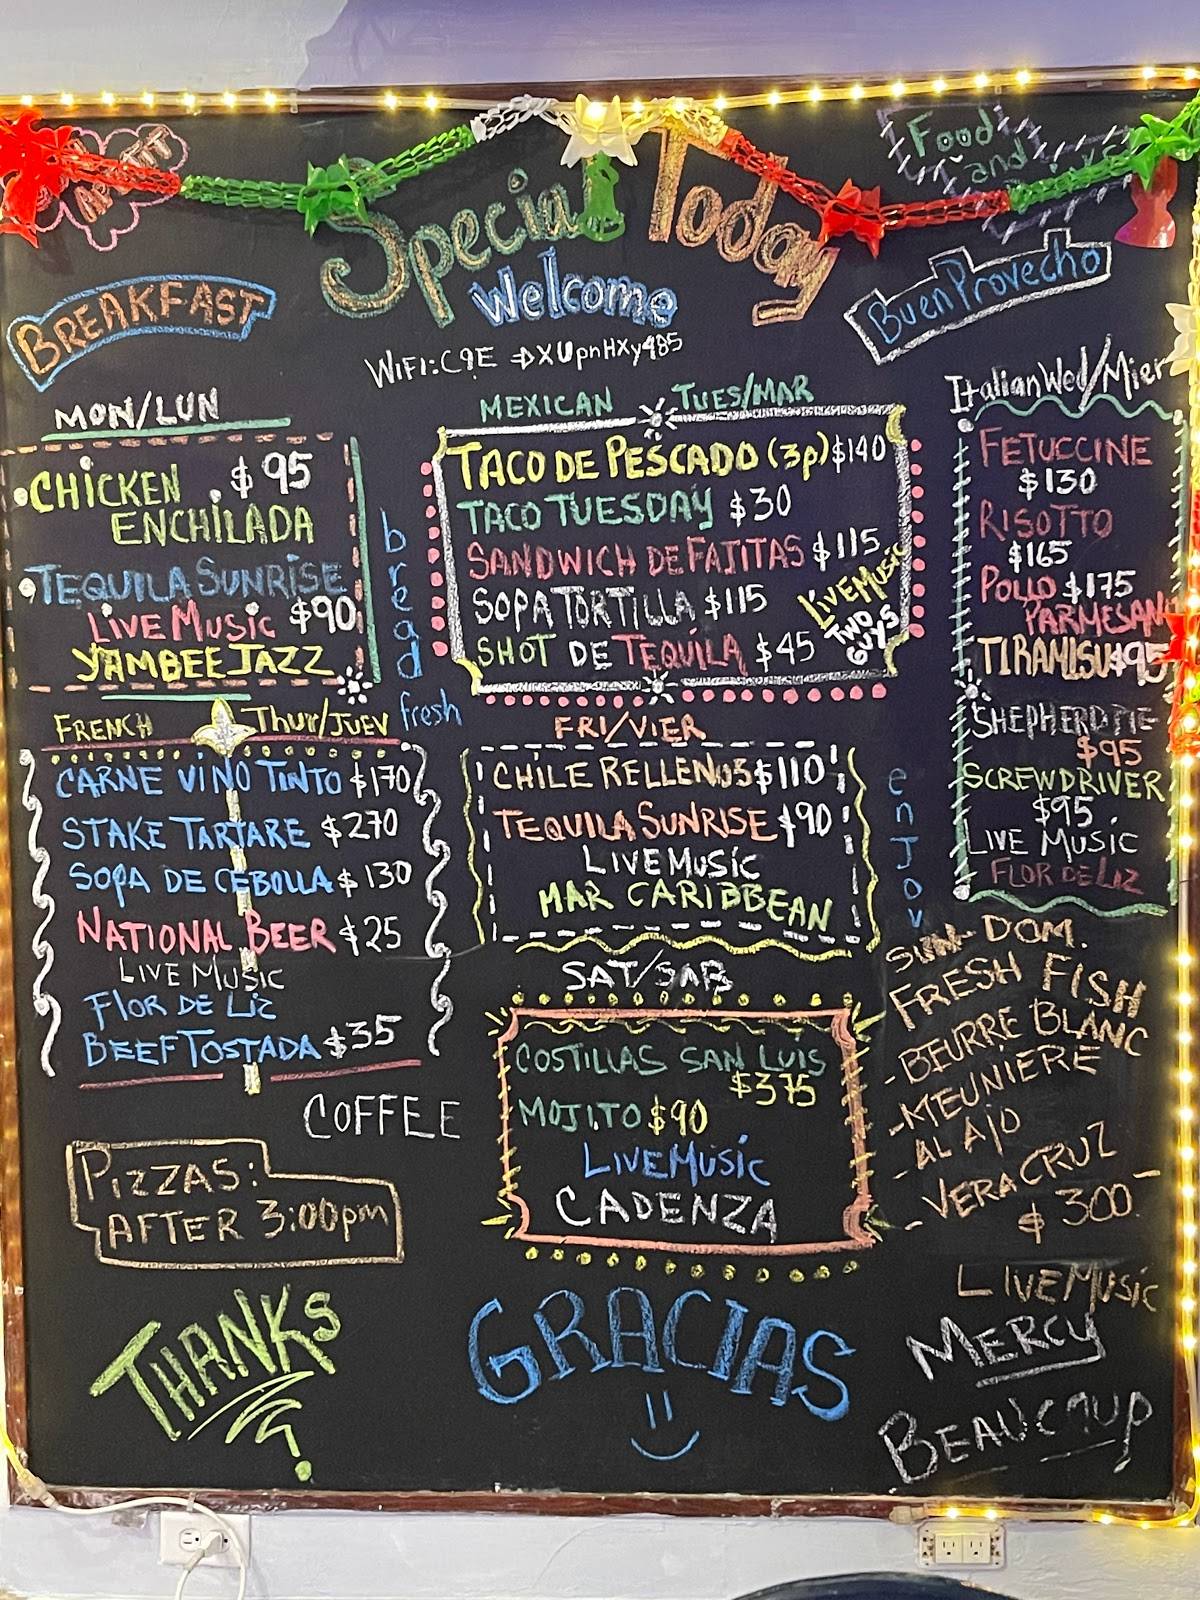 Special Today
Food
and
Welcome
Buen Provecho
BREAKFAST
WIFI: C9E ⇒ XUpnHXy485
MON/LUN
CHICKEN $95
ENCHILADA
TEQUILA SUNRISE
LIVE MUSIC $90
YAMBEE JAZZ
bread
fresh
MEXICAN TUES/MAR
TACO DE PESCADO (3p) $140
TACO TUESDAY $30
SANDWICH DE FAJITAS $115
SOPA TORTILLA $115
SHOT DE TEQUILA $45
LIVE MUSIC
TWO
GUYS
Italian Wed/Mier
FETUCCINE
$130
RISOTTO
$165
POLLO $175
PARMESAN
TIRAMISU $95
SHEPHERD PIE
$95
SCREWDRIVER
$95
LIVE MUSIC
FLOR DE LIZ
FRENCH Thur/JUEV
CARNE VINO TINTO $170
STAKE TARTARE $270
SOPA DE CEBOLLA $130
NATIONAL BEER $25
LIVE MUSIC
FLOR DE LIZ
BEEF TOSTADA $35
FRI/VIER
CHILE RELLENOS $110
TEQUILA SUNRISE $90
LIVE MUSIC
MAR CARIBBEAN
enJoy
SAT/SAB
COSTILLAS SAN LUIS
$375
MOJITO $90
LIVE MUSIC
CADENZA
SUN- DOM.
FRESH FISH
- BEURRE BLANC
- MEUNIERE
- AL AJO
- VERACRUZ
$300-
LIVE MUSIC
COFFEE
PIZZAS:
AFTER 3:00pm
THANKS
GRACIAS
MERCY
BEAUCOUP